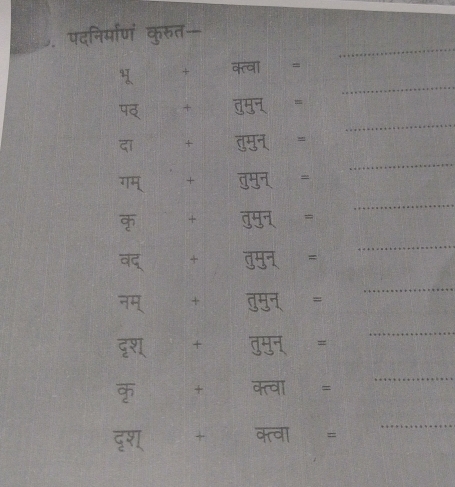 . पदनिर्माणं कुरुत—
भू + क्त्वा = ....................
पठ् + तुमुन् = ....................
दा + तुमुन् = ....................
गम् + तुमुन् = ....................
कृ + तुमुन् = ....................
वद् + तुमुन् = ....................
नम् + तुमुन् = ....................
दृश् + तुमुन् = ....................
कृ + क्त्वा = ....................
दृश् + क्त्वा = ....................